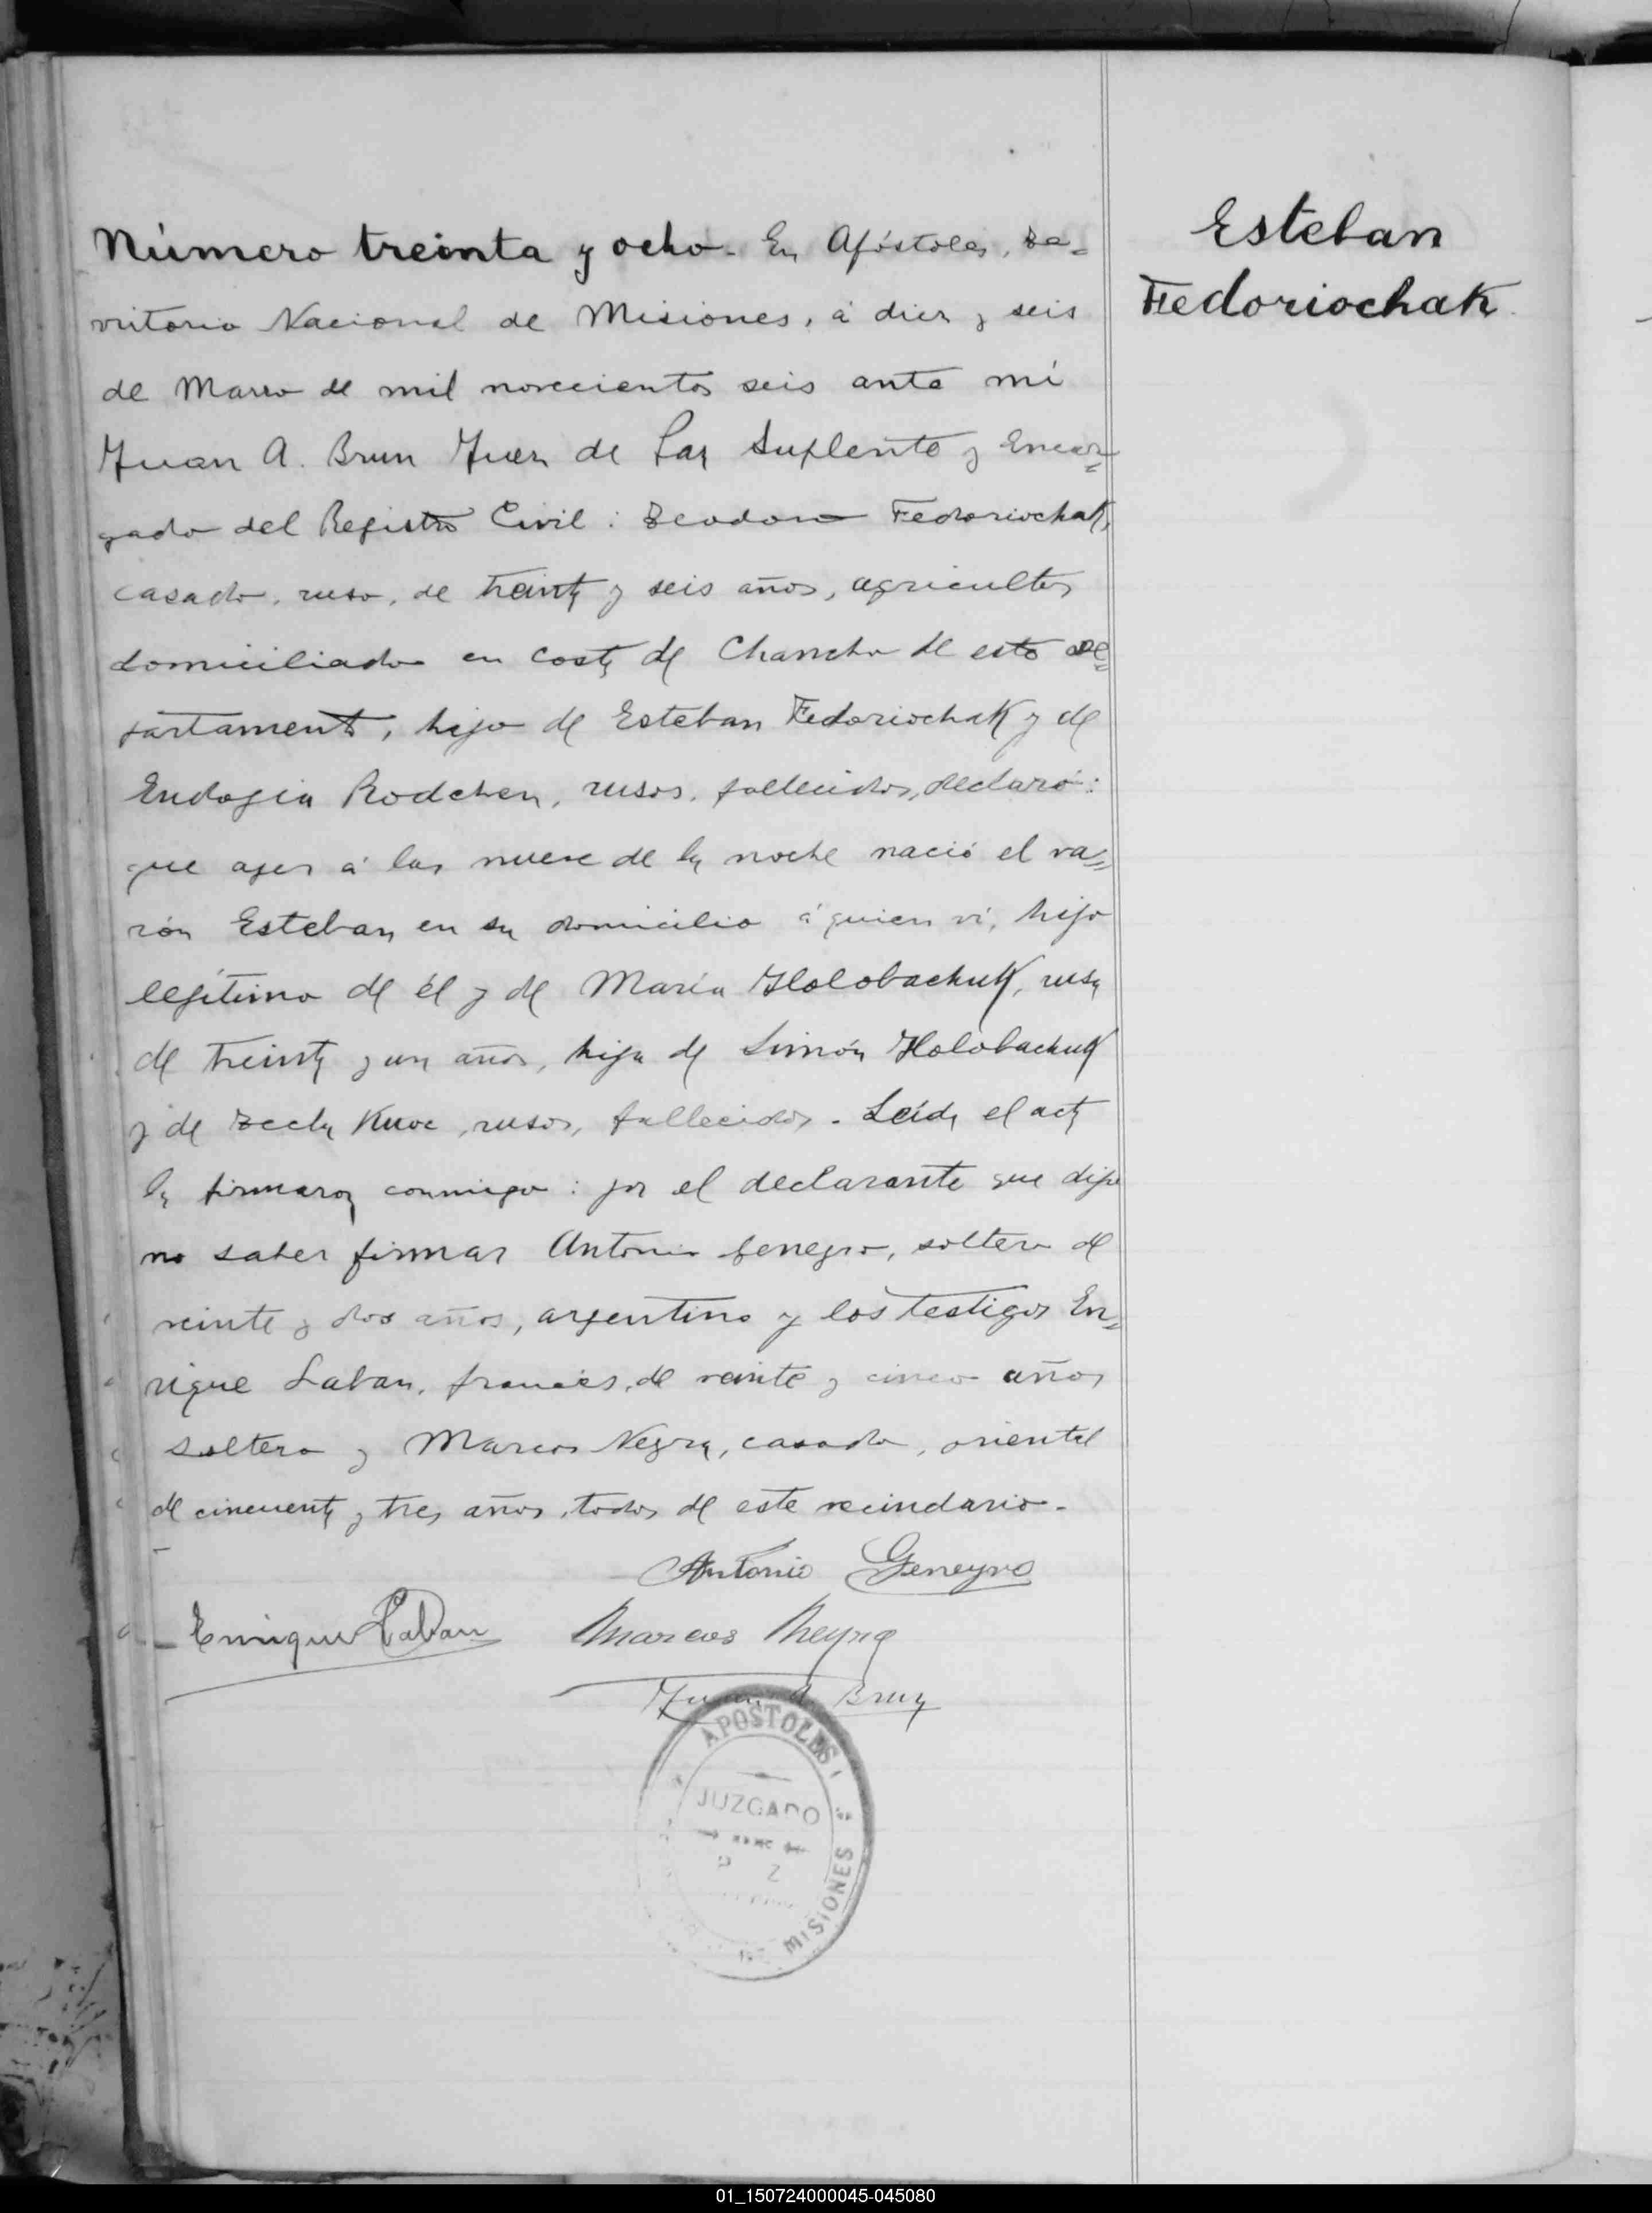 Número treinta y ocho. En Apóstoles, Te=
rritorio Nacional de Misiones, á diez y seis
de Marzo de mil novecientos seis ante mí
Juan A. Brun Juez de Paz Suplente y Encar=
gado del Registro Civil: Teodoro Fedoriochak,
casado, ruso, de treinta y seis años, agricultor
domiciliado en costa de Chancho de este De=
partamento, hijo de Esteban Fedoriochak y de
Eudogia Rodchen, rusos, fallecidos, declaró:
que ayer á las nueve de la noche nació el va=
rón Esteban en su domicilio á quien ví, hijo
legítimo de él y de María Holobachuk, rusa
de treinta y un años, hija de Simón Holobachuk
y de Tecla Kuoc, rusos, fallecidos. Leída el acta
la firmaron conmigo: por el declarante que dijo
no saber firmar Antonio Geneyro, soltero de
veinte y dos años, argentino y los testigos En=
rique Laban, francés, de veinte y cinco años
soltero y Marcos Neyra, casado, oriental
de cincuenta y tres años, todos de este vecindario.
Antonio Geneyro
Enrique Laban Marcos Neyra
Juan A. Brun
APOSTOLES
JUZGADO
MISIONES
Esteban
Fedoriochak.
01_150724000045-045080